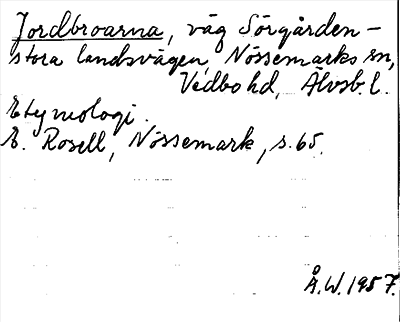 Jordbroarna, väg Sörgården –
stora landsvägen, Nössemarks sn,
Vedbo hd, Älvsb. l.
Etymologi.
E. Rosell, Nössemark, s. 65.
Å.W. 1957.